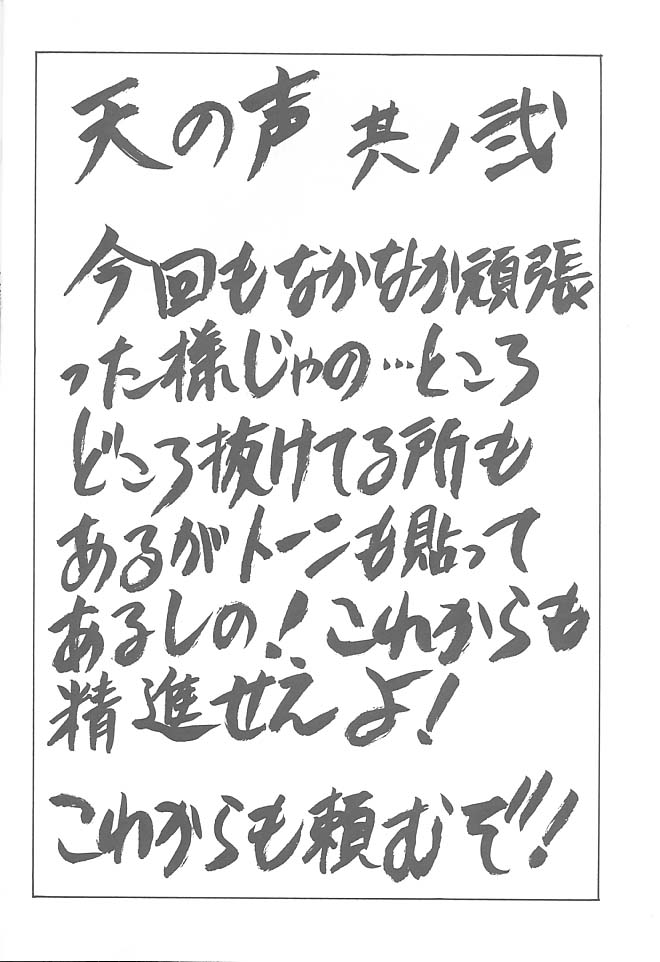 天の声 其ノ弐
今回もなかなか頑張
った様じゃの…ところ
どころ抜けてる所も
あるがトーンも貼って
あるしの！これからも
精進せえよ！
これからも頼むぞ!!